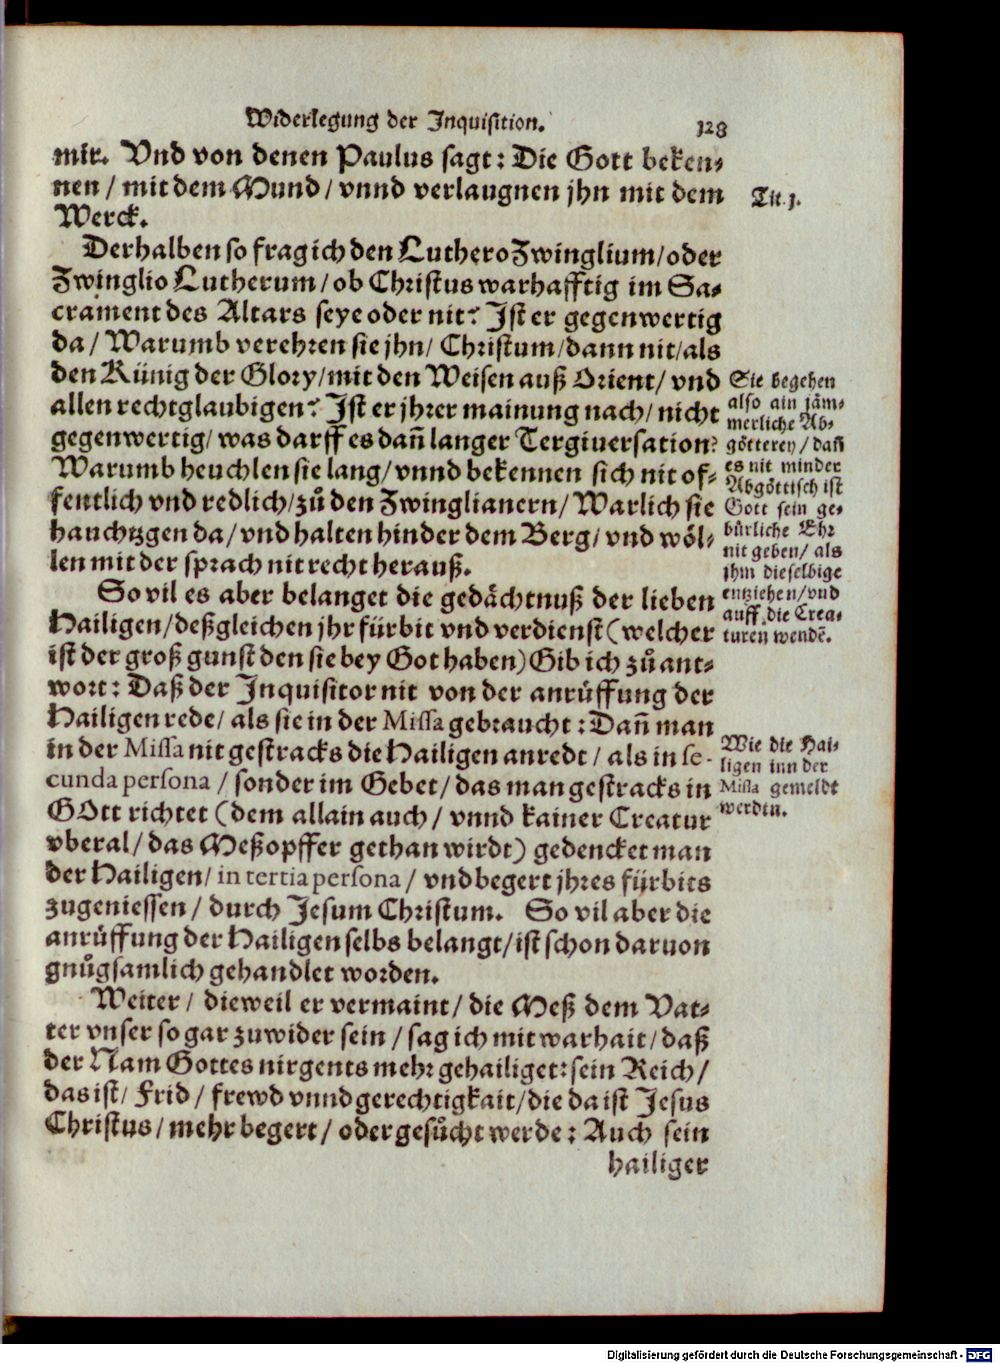 Widerlegung der Inquisition. 128
mir. Vnd von denen Paulus sagt: Die Gott beken-
nen / mit dem Mund / vnnd verlaugnen jhn mit dem
Werck.
Tit. 1.
Derhalben so frag ich den Luthero Zwinglium / oder
Zwinglio Lutherum / ob Christus warhafftig im Sa-
crament des Altars seye oder nit? Ist er gegenwertig
da / Warumb verehren sie jhn / Christum / dann nit / als
den Künig der Glory / mit den Weisen auß Orient / vnd
allen rechtglaubigen? Ist er jhrer mainung nach / nicht
gegenwertig / was darff es dañ langer Tergiuersation?
Warumb heuchlen sie lang / vnnd bekennen sich nit of-
fentlich vnd redlich / zů den Zwinglianern / Warlich sie
hanchtzgen da / vnd halten hinder dem Berg / vnd wöl-
len mit der sprach nit recht herauß.
Sie begehen
also ain jäm-
merliche Ab-
götterey / dañ
es nit minder
Abgöttisch ist
Gott sein ge-
bürliche Ehr
nit geben / als
jhm dieselbige
entziehen / vnd
auff die Crea-
turen wendē.
So vil es aber belanget die gedächtnuß der lieben
Hailigen / deßgleichen jhr fürbit vnd verdienst (welcher
ist der groß gunst den sie bey Got haben) Gib ich zů ant-
wort: Daß der Inquisitor nit von der anrüffung der
Hailigen rede / als sie in der Missa gebraucht: Dañ man
in der Missa nit gestracks die Hailigen anredt / als in se-
cunda persona / sonder im Gebet / das man gestracks in
GOtt richtet (dem allain auch / vnnd kainer Creatur
vberal / das Meßopffer gethan wirdt) gedencket man
der Hailigen / in tertia persona / vnd begert jhres fürbits
zugeniessen / durch Jesum Christum. So vil aber die
anrüffung der Hailigen selbs belangt / ist schon daruon
gnůgsamlich gehandlet worden.
Wie die Hai-
ligen inn der
Missa gemeldt
werden.
Weiter / dieweil er vermaint / die Meß dem Vat-
ter vnser so gar zuwider sein / sag ich mit warhait / daß
der Nam Gottes nirgents mehr gehailiget: sein Reich /
das ist / Frid / frewd vnnd gerechtigkait / die da ist Jesus
Christus / mehr begert / oder gesůcht werde: Auch sein
hailiger
Digitalisierung gefördert durch die Deutsche Forschungsgemeinschaft - DFG